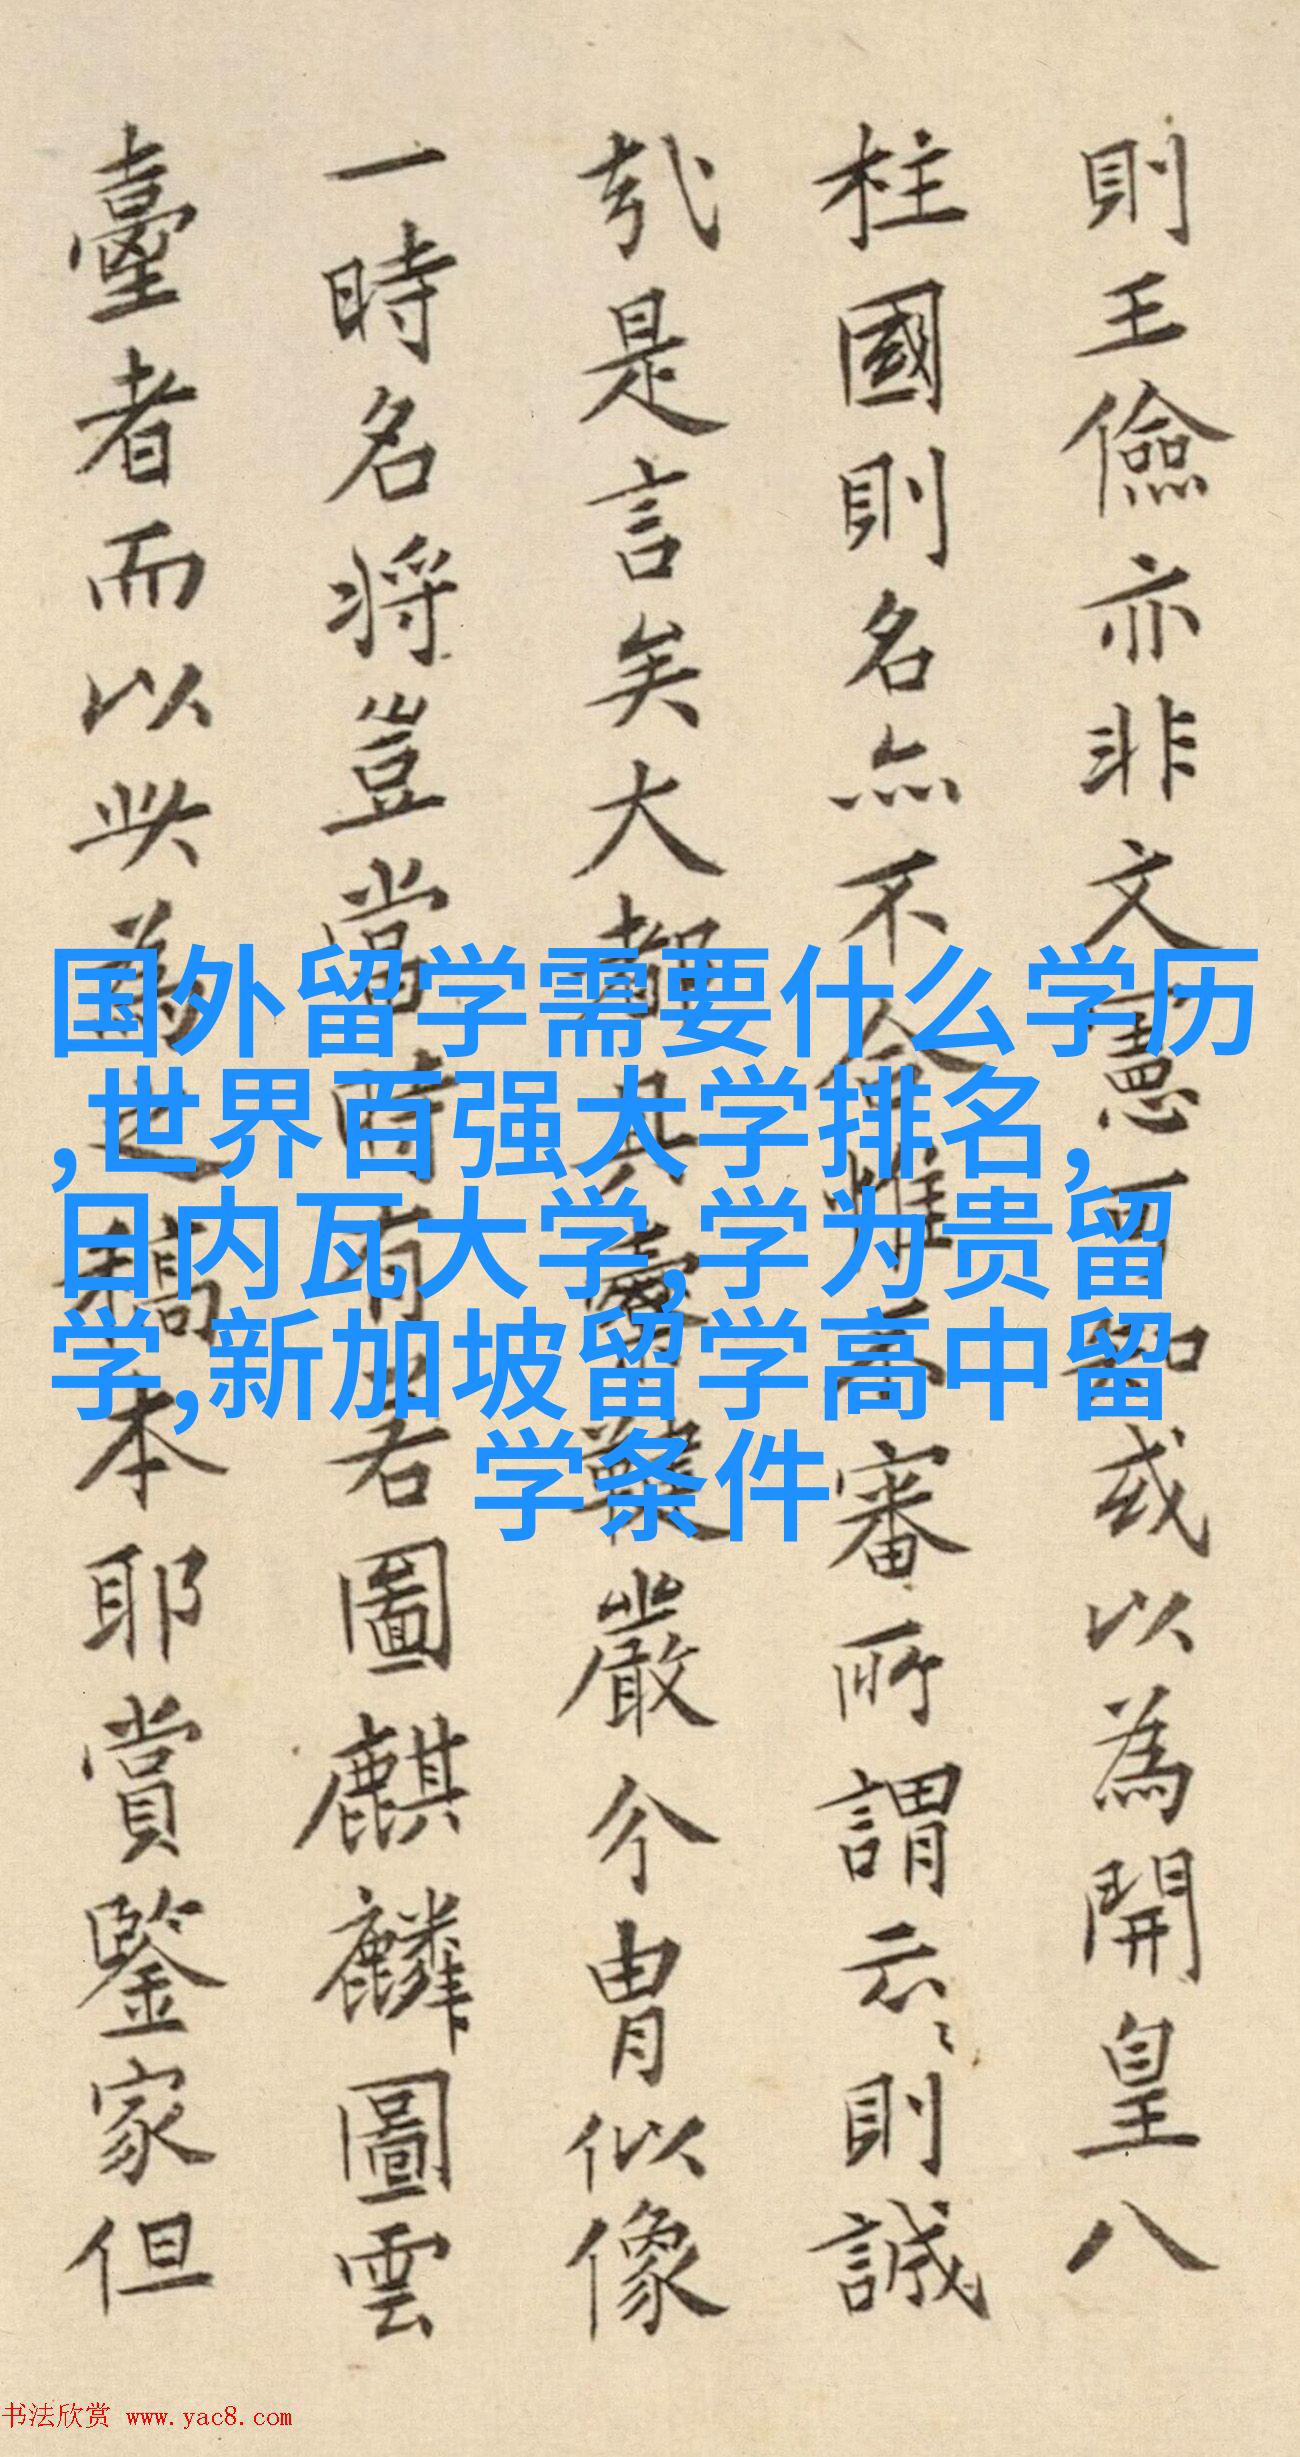 則王儉亦非文憲可知或以為開皇八
柱國則名無不儉惟不審所謂云〻則誠
哉是言矣大都具囊鞬嚴介胄似像
一時名將豈當時有若圖麒麟圖雲
臺者而以此為之稿本耶賞鑒家但
国外留学需要什么学历
,世界百强大学排名,
日内瓦大学,学为贵留
学,新加坡留学高中留
学条件
书法欣赏 www.yac8.com